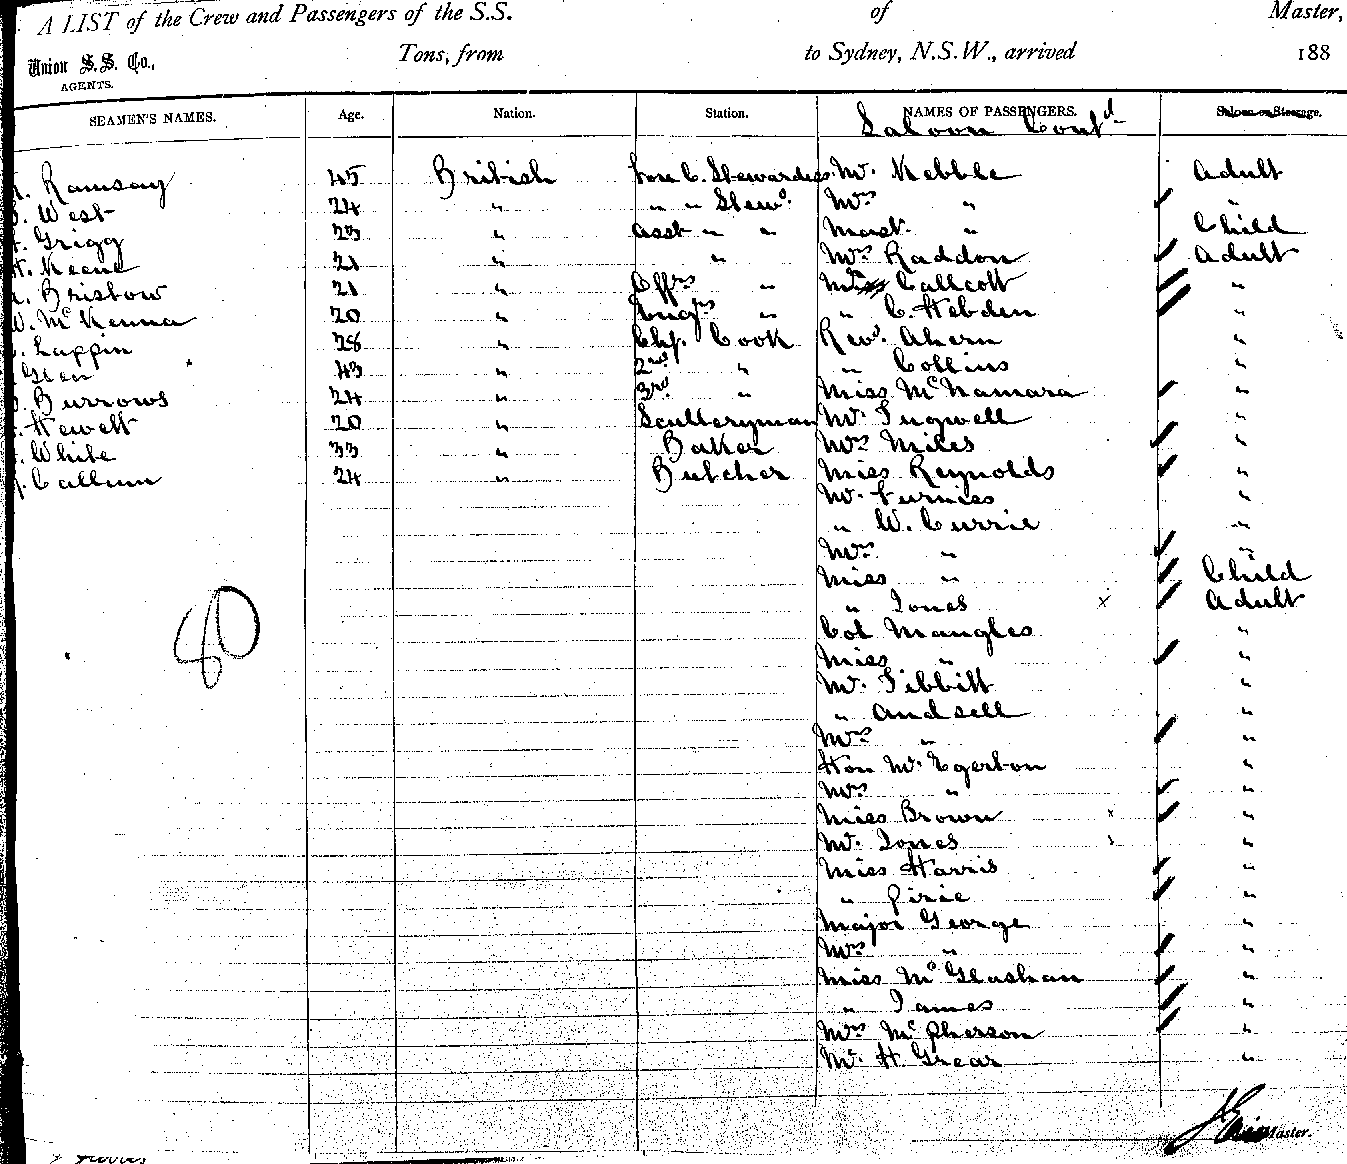 A LIST of the Crew and Passengers of the S.S. of Master,
Union S.S. Co., AGENTS. Tons, from to Sydney, N.S.W., arrived 188
SEAMEN'S NAMES. Age. Nation. Station. NAMES OF PASSENGERS. Saloon or Steerage.
Saloon Contd
Ramsay 45 British Fore C. Stewardess Mr. Kebble Adult
West 24 " " " Stewd Mrs " "
Grigg 23 " Asst " " Mast. " Child
Keene 21 " " Mrs Raddon Adult
Bristow 21 " Offrs " Callcott "
W. McKenna 20 " Engrs " " C. Hebden "
Lappin 28 " Chf. Cook Revd. Ahern "
Glen 43 " 2nd " " Collins "
Burrows 24 " 3rd " Miss McNamara "
Hewett 20 " Sculleryman Mr. Tugwell "
White 33 " Baker Mrs Miles "
Callum 24 " Butcher Miss Reynolds "
Mr. Furniss "
" W. Currie "
Mrs " "
Miss " Child
" Jones x Adult
Col Mangles "
Miss " "
Mr. Tibbitt "
" Andsell "
Mrs " "
Hon Mr. Egerton "
Mrs " "
Miss Brown x "
Mr. Jones "
Miss Harris "
80
" Pirie "
Major George "
Mrs " "
Miss McGlashan "
" James "
Mrs McPherson "
Mr. H. Grear "
Master.